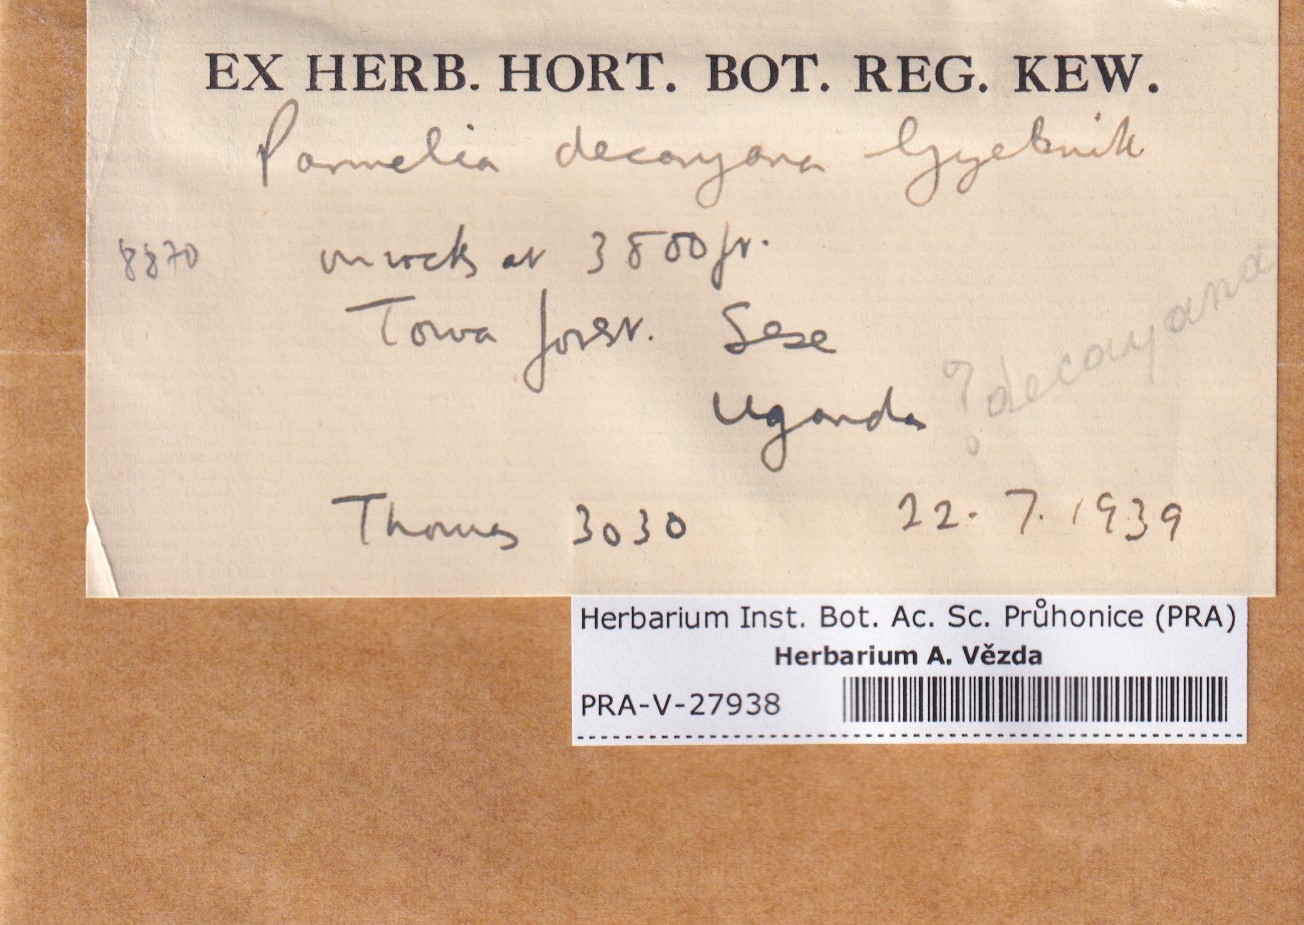 EX HERB. HORT. BOT. REG. KEW.
Parmelia decaryana Gyelnik
8870
on rocks at 3800 ft.
Towa forest. Sese
Uganda
? decaryana
Thomas 3030 22.7.1939
Herbarium Inst. Bot. Ac. Sc. Průhonice (PRA)
Herbarium A. Vězda
PRA-V-27938